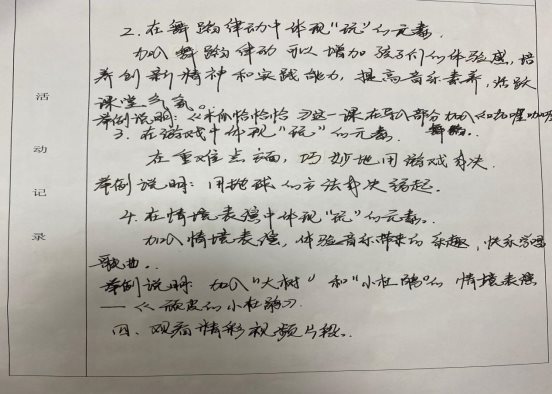 活动记录
2. 在舞蹈律动中体现"玩"的元素.
加入舞蹈律动可以增加孩子们的体验感, 培
养创新精神和实践能力, 提高音乐素养, 活跃
课堂气氛。
举例说明:《恰恰恰》这一课在导入部分加入
舞蹈.
3. 在游戏中体现"玩"的元素.
在重难点方面, 巧妙地用游戏解决.
举例说明: 用拍球的方法解决弱起.
4. 在情境表演中体现"玩"的元素.
加入情境表演, 体验音乐带来的乐趣, 快乐学唱
歌曲.
举例说明: 加入"大树"和"小杜鹃"的情境表演
——《顽皮的小杜鹃》.
四、观看精彩视频片段.